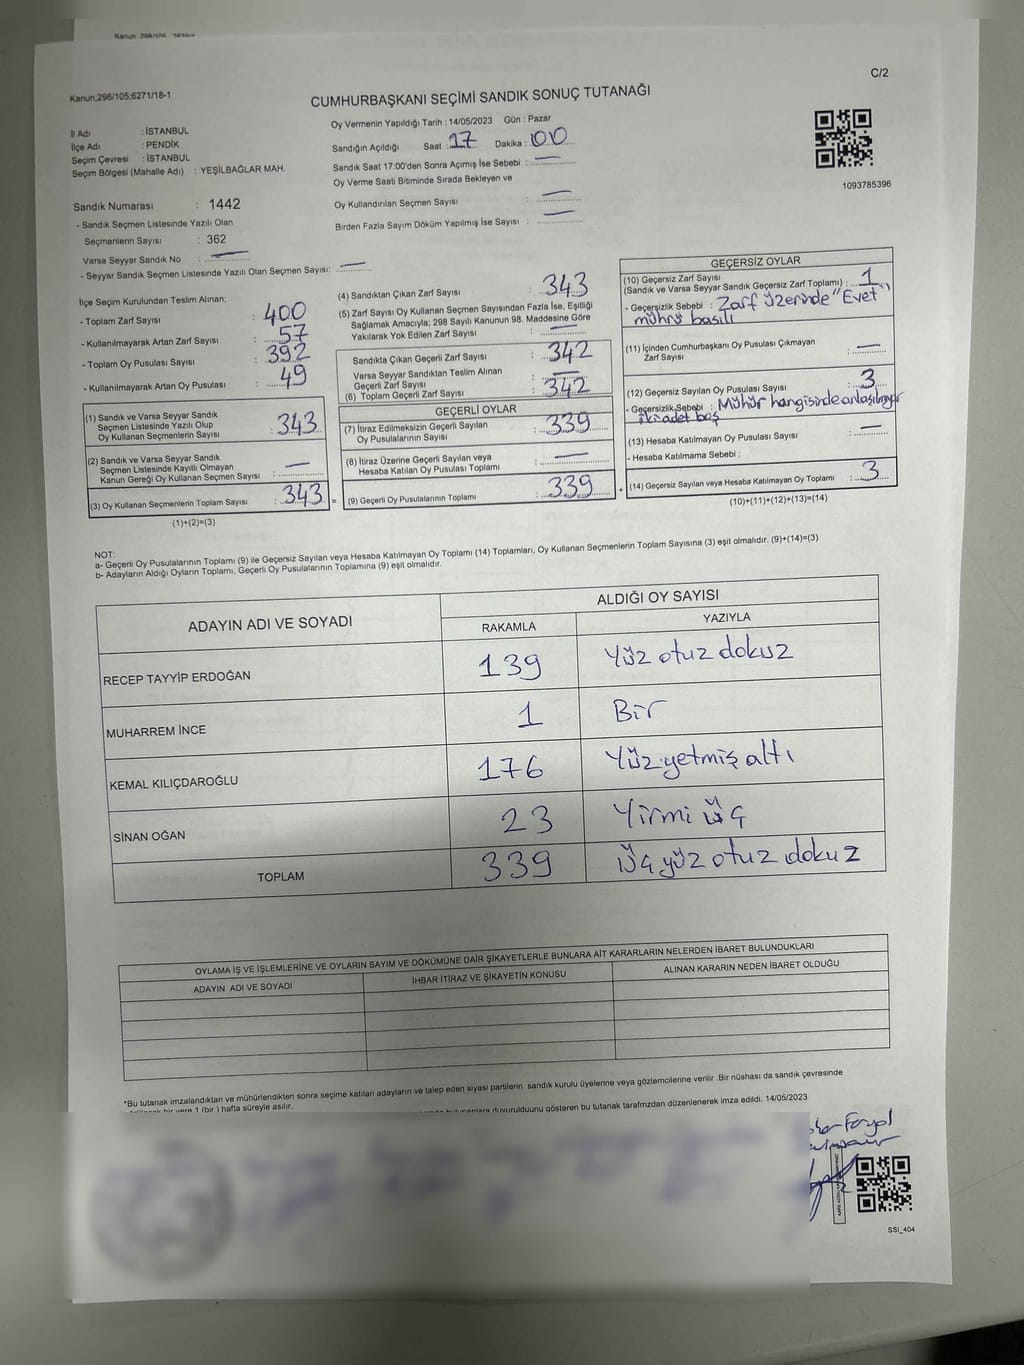 C/2
Kanun;298/105;6271/18-1
CUMHURBAŞKANI SEÇİMİ SANDIK SONUÇ TUTANAĞI
İl Adı : İSTANBUL
İlçe Adı : PENDİK
Seçim Çevresi : İSTANBUL
Seçim Bölgesi (Mahalle Adı) : YEŞİLBAĞLAR MAH.
Sandık Numarası : 1442
- Sandık Seçmen Listesinde Yazılı Olan
Seçmenlerin Sayısı : 362
Varsa Seyyar Sandık No : —
- Seyyar Sandık Seçmen Listesinde Yazılı Olan Seçmen Sayısı: —
Oy Vermenin Yapıldığı Tarih : 14/05/2023 Gün : Pazar
Sandığın Açıldığı Saat : 17 Dakika : 00
Sandık Saat 17:00'den Sonra Açımış İse Sebebi : —
Oy Verme Saati Bitiminde Sırada Bekleyen ve
Oy Kullandırılan Seçmen Sayısı : —
Birden Fazla Sayım Döküm Yapılmış İse Sayısı : —
1093785396
İlçe Seçim Kurulundan Teslim Alınan;
- Toplam Zarf Sayısı : 400
- Kullanılmayarak Artan Zarf Sayısı : 57
- Toplam Oy Pusulası Sayısı : 392
- Kullanılmayarak Artan Oy Pusulası : 49
(1) Sandık ve Varsa Seyyar Sandık
Seçmen Listesinde Yazılı Olup
Oy Kullanan Seçmenlerin Sayısı : 343
(2) Sandık ve Varsa Seyyar Sandık
Seçmen Listesinde Kayıtlı Olmayan
Kanun Gereği Oy Kullanan Seçmen Sayısı : —
(3) Oy Kullanan Seçmenlerin Toplam Sayısı : 343 =
(1)+(2)=(3)
(4) Sandıktan Çıkan Zarf Sayısı : 343
(5) Zarf Sayısı Oy Kullanan Seçmen Sayısından Fazla İse, Eşitliği
Sağlamak Amacıyla; 298 Sayılı Kanunun 98. Maddesine Göre
Yakılarak Yok Edilen Zarf Sayısı : —
Sandıkta Çıkan Geçerli Zarf Sayısı : 342
Varsa Seyyar Sandıktan Teslim Alınan
Geçerli Zarf Sayısı : —
(6) Toplam Geçerli Zarf Sayısı : 342
GEÇERLİ OYLAR
(7) İtiraz Edilmeksizin Geçerli Sayılan
Oy Pusulalarının Sayısı : 339
(8) İtiraz Üzerine Geçerli Sayılan veya
Hesaba Katılan Oy Pusulası Toplamı : —
(9) Geçerli Oy Pusulalarının Toplamı : 339
GEÇERSİZ OYLAR
(10) Geçersiz Zarf Sayısı
(Sandık ve Varsa Seyyar Sandık Geçersiz Zarf Toplamı) : 1
- Geçersizlik Sebebi : Zarf üzerinde "Evet"
mührü basılı
(11) İçinden Cumhurbaşkanı Oy Pusulası Çıkmayan
Zarf Sayısı : —
(12) Geçersiz Sayılan Oy Pusulası Sayısı : 3
- Geçersizlik Sebebi : Mühür hangisinde anlaşılmıyor
iki adet boş
(13) Hesaba Katılmayan Oy Pusulası Sayısı : —
- Hesaba Katılmama Sebebi :
(14) Geçersiz Sayılan veya Hesaba Katılmayan Oy Toplamı : 3
(10)+(11)+(12)+(13)=(14)
NOT:
a- Geçerli Oy Pusulalarının Toplamı (9) ile Geçersiz Sayılan veya Hesaba Katılmayan Oy Toplamı (14) Toplamları, Oy Kullanan Seçmenlerin Toplam Sayısına (3) eşit olmalıdır. (9)+(14)=(3)
b- Adayların Aldığı Oyların Toplamı, Geçerli Oy Pusulalarının Toplamına (9) eşit olmalıdır.
ADAYIN ADI VE SOYADI
ALDIĞI OY SAYISI
RAKAMLA YAZIYLA
RECEP TAYYİP ERDOĞAN 139 Yüz otuz dokuz
MUHARREM İNCE 1 Bir
KEMAL KILIÇDAROĞLU 176 Yüz yetmiş altı
SİNAN OĞAN 23 Yirmi üç
TOPLAM 339 Üç yüz otuz dokuz
OYLAMA İŞ VE İŞLEMLERİNE VE OYLARIN SAYIM VE DÖKÜMÜNE DAİR ŞİKAYETLERLE BUNLARA AİT KARARLARIN NELERDEN İBARET BULUNDUKLARI
ADAYIN ADI VE SOYADI İHBAR İTİRAZ VE ŞİKAYETİN KONUSU ALINAN KARARIN NEDEN İBARET OLDUĞU
*Bu tutanak imzalandıktan ve mühürlendikten sonra seçime katılan adayların ve talep eden siyasi partilerin sandık kurulu üyelerine veya gözlemcilerine verilir .Bir nüshası da sandık çevresinde
bir yere 1 (bir ) hafta süreyle asılır.
duyurulduunu gösteren bu tutanak tarafmzdan düzenlenerek imza edildi. 14/05/2023
SSI_404